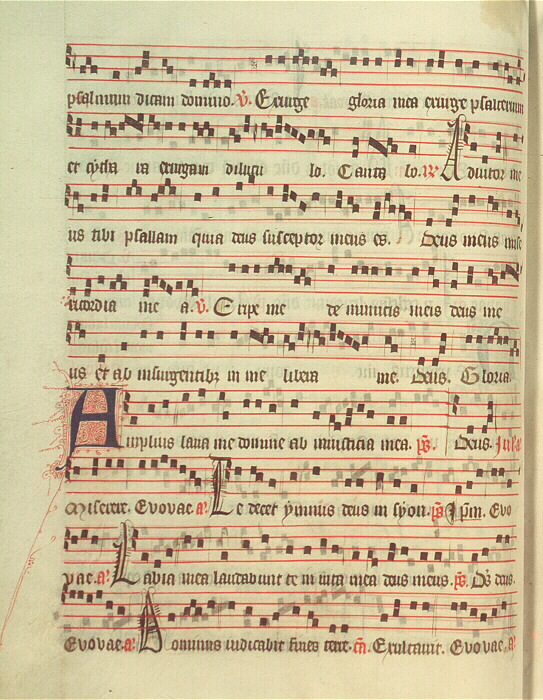 psalmum dicam domino. v. Exurge gloria mea exurge psalterium
et cytha ra exurgam dilucu lo. Canta lo. Adiutor me
us tibi psallam quia deus susceptor meus es. Deus meus mise
ricordia me a. v. Eripe me de inimicis meis deus me
us et ab insurgentibz in me libera me. Deus. Gloria.
Amplius lava me domine ab iniusticia mea. ps. Deus.
Miserere. Evovae. a. Te decet ymnus deus in syon. ps. Ipm. Evo
vae. a. Labia mea laudabunt te in vita mea deus meus. ps. Ds deus.
Evovae. a. Dominus iudicabit fines terre. Exultavit. Evovae. a.